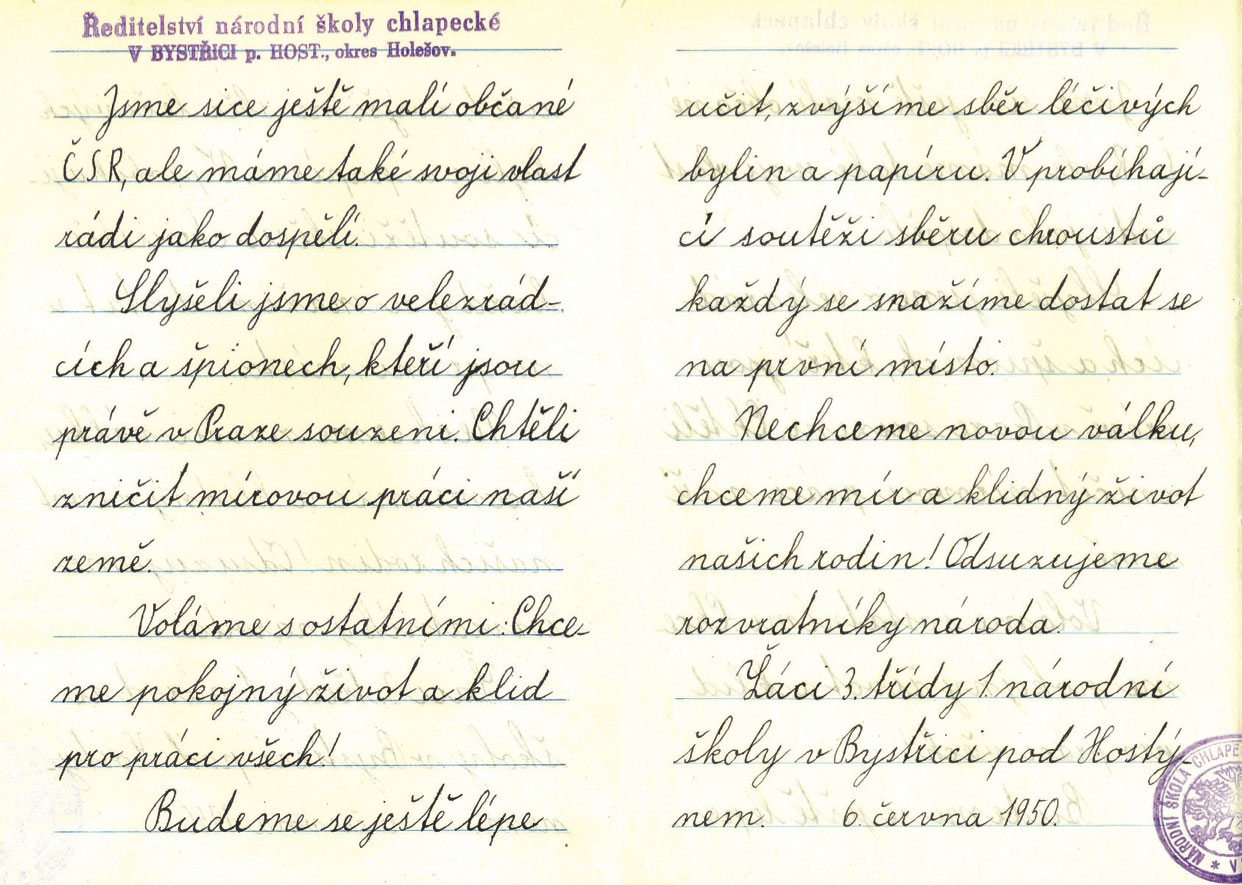 Ředitelství národní školy chlapecké
V BYSTŘICI p. HOST., okres Holešov.
Jsme sice ještě malí občané
ČSR, ale máme také svoji vlast
rádi jako dospělí.
Slyšeli jsme o velezrád-
cích a špionech, kteří jsou
právě v Praze souzeni. Chtěli
zničit mírovou práci naší
země.
Voláme s ostatními: Chce-
me pokojný život a klid
pro práci všech!
Budeme se ještě lépe
učit, zvýšíme sběr léčivých
bylin a papíru. V probíhají-
cí soutěži sběru chroustů
každý se snažíme dostat se
na první místo.
Nechceme novou válku,
chceme mír a klidný život
našich rodin! Odsuzujeme
rozvratníky národa.
Žáci 3. třídy 1. národní
školy v Bystřici pod Hostý-
nem. 6. června 1950.
NÁRODNÍ ŠKOLA CHLAPE
* V